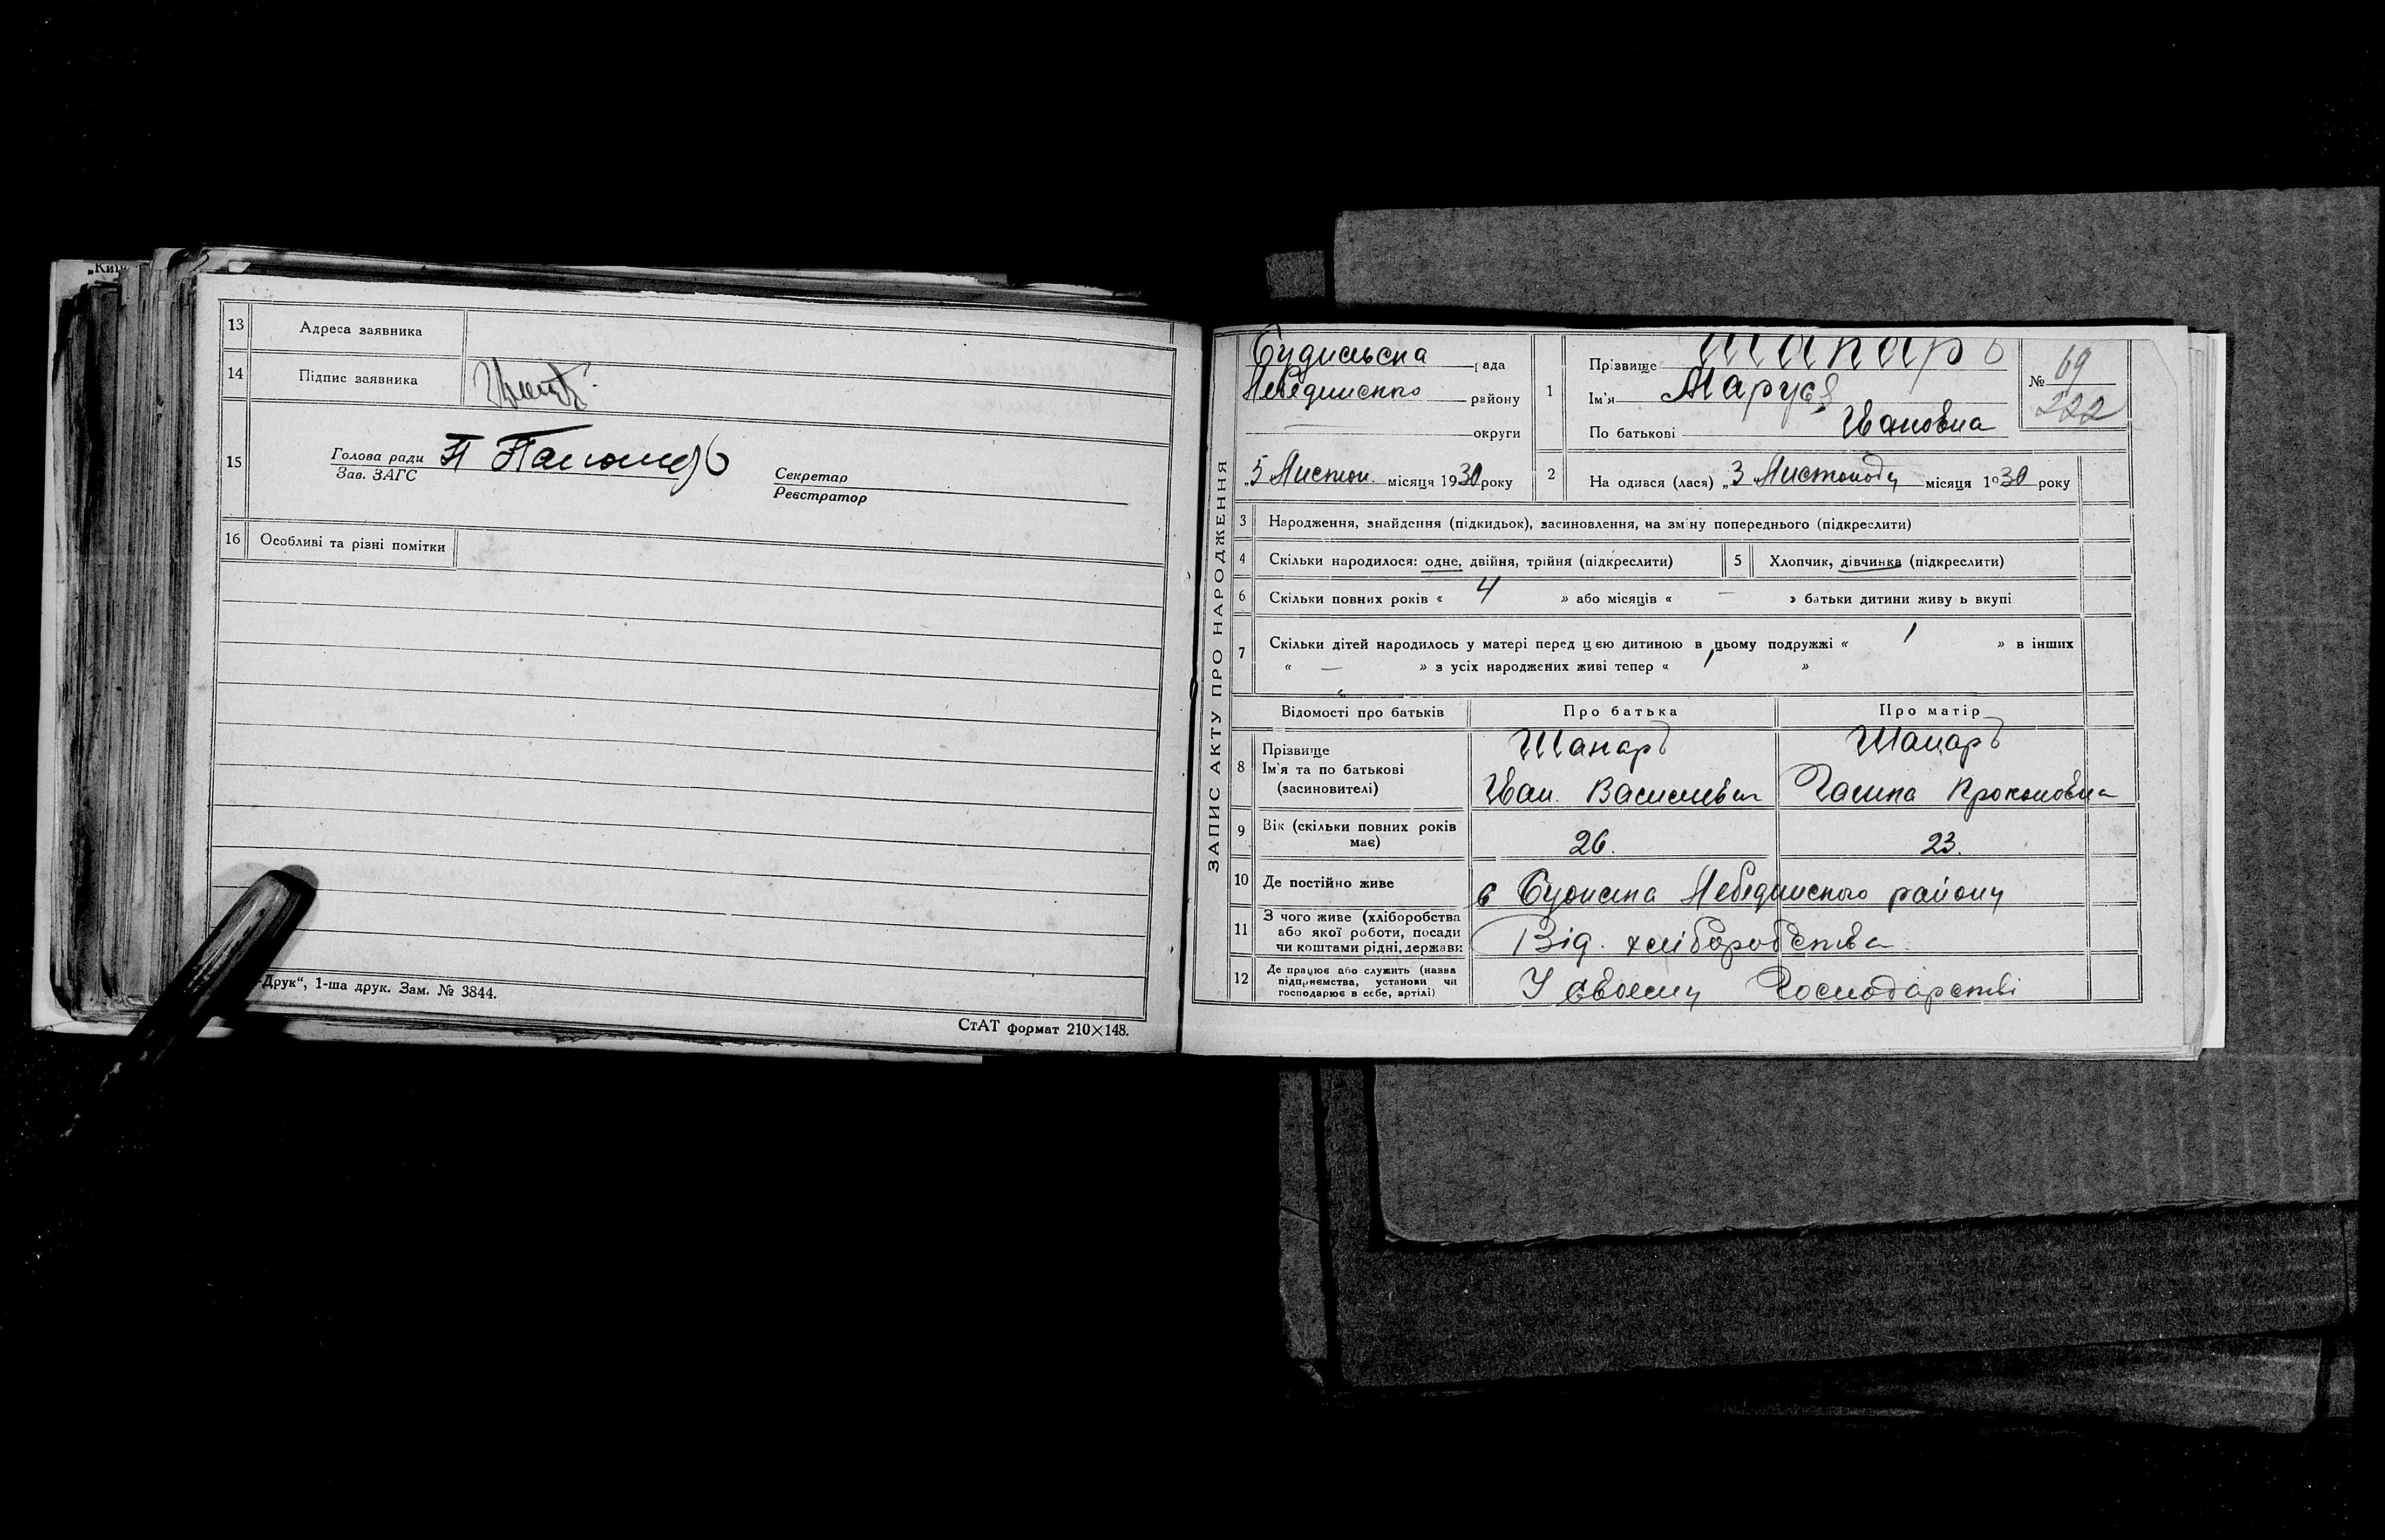 „Київ
13 Адреса заявника
14 Підпис заявника
15 Голова ради
Зав. ЗАГС
Секретар
Реєстратор
16 Особливі та різні помітки
-Друк“, 1-ша друк. Зам. № 3844.
СтАТ формат 210×148.
ЗАПИС АКТУ ПРО НАРОДЖЕННЯ
Будильска рада
району
округи
„5 Листоп. місяця 1930 року
1 Прізвище Шапарь
Ім'я Маруся
По батькові Ивановна
№ 69
222
2 На одився (лася) „3 Листопаду місяця 1930 року
3 Народження, знайдення (підкидьок), засиновлення, на зміну попереднього (підкреслити)
4 Скільки народилося: одне, двійня, трійня (підкреслити)
5 Хлопчик, дівчинка (підкреслити)
6 Скільки повних років « 4 » або місяців « — » батьки дитини живуть вкупі
7 Скільки дітей народилось у матері перед цією дитиною в цьому подружжі « 1 » в інших
« — » з усіх народжених живі тепер « 1 »
Відомості про батьків
Про батька
Про матір
8 Прізвище
Ім'я та по батькові
(засиновителі)
Шапарь
Иван. Васильевич
Шапарь
Галина Прокоповна
9 Вік (скільки повних років
має)
26.
23.
10 Де постійно живе
Лебединского району
11 З чого живе (хліборобства
або якої роботи, посади
чи коштами рідні, держави
Від. хліборобства
12 Де працює або служить (назва
підприємства, установи чи
господарює в себе, артілі)
У своему Господарстві